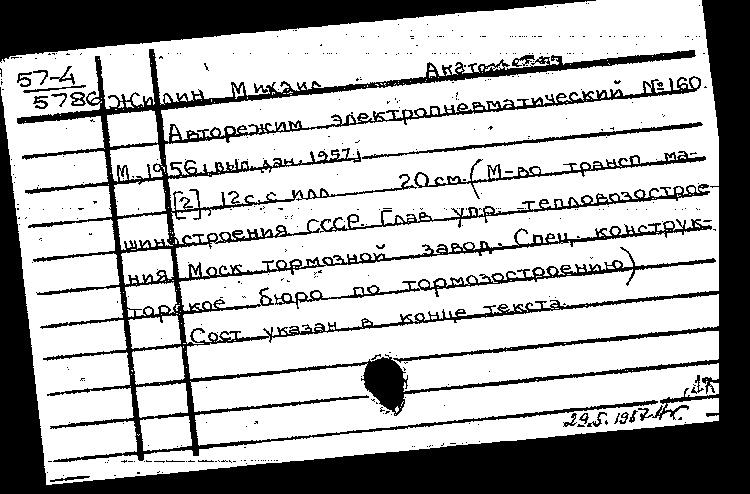 57-4
5786 Жилин Михаил Анатольевич
Авторежим электропневматический № 160.
М., 1956, [вып. дан. 1957]
[2], 12 с. с илл. 20 см. (М-во трансп. ма-
шиностроения СССР. Глав. упр. тепловозострое-
ния. Моск. тормозной завод. Спец. конструк-
торское бюро по тормозостроению)
Сост. указан в конце текста.
29.5.1957